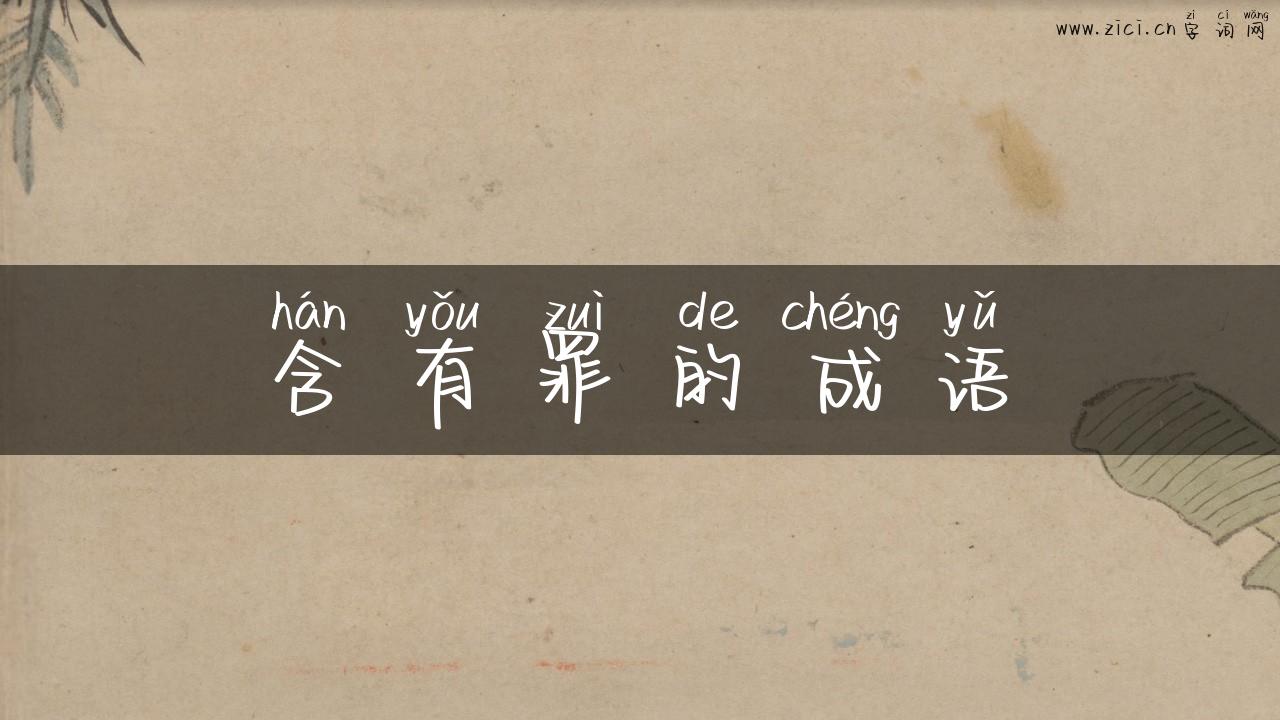 zì cí wǎng
www.zici.cn 字词网
hán yǒu zuì de chéng yǔ
含有罪的成语